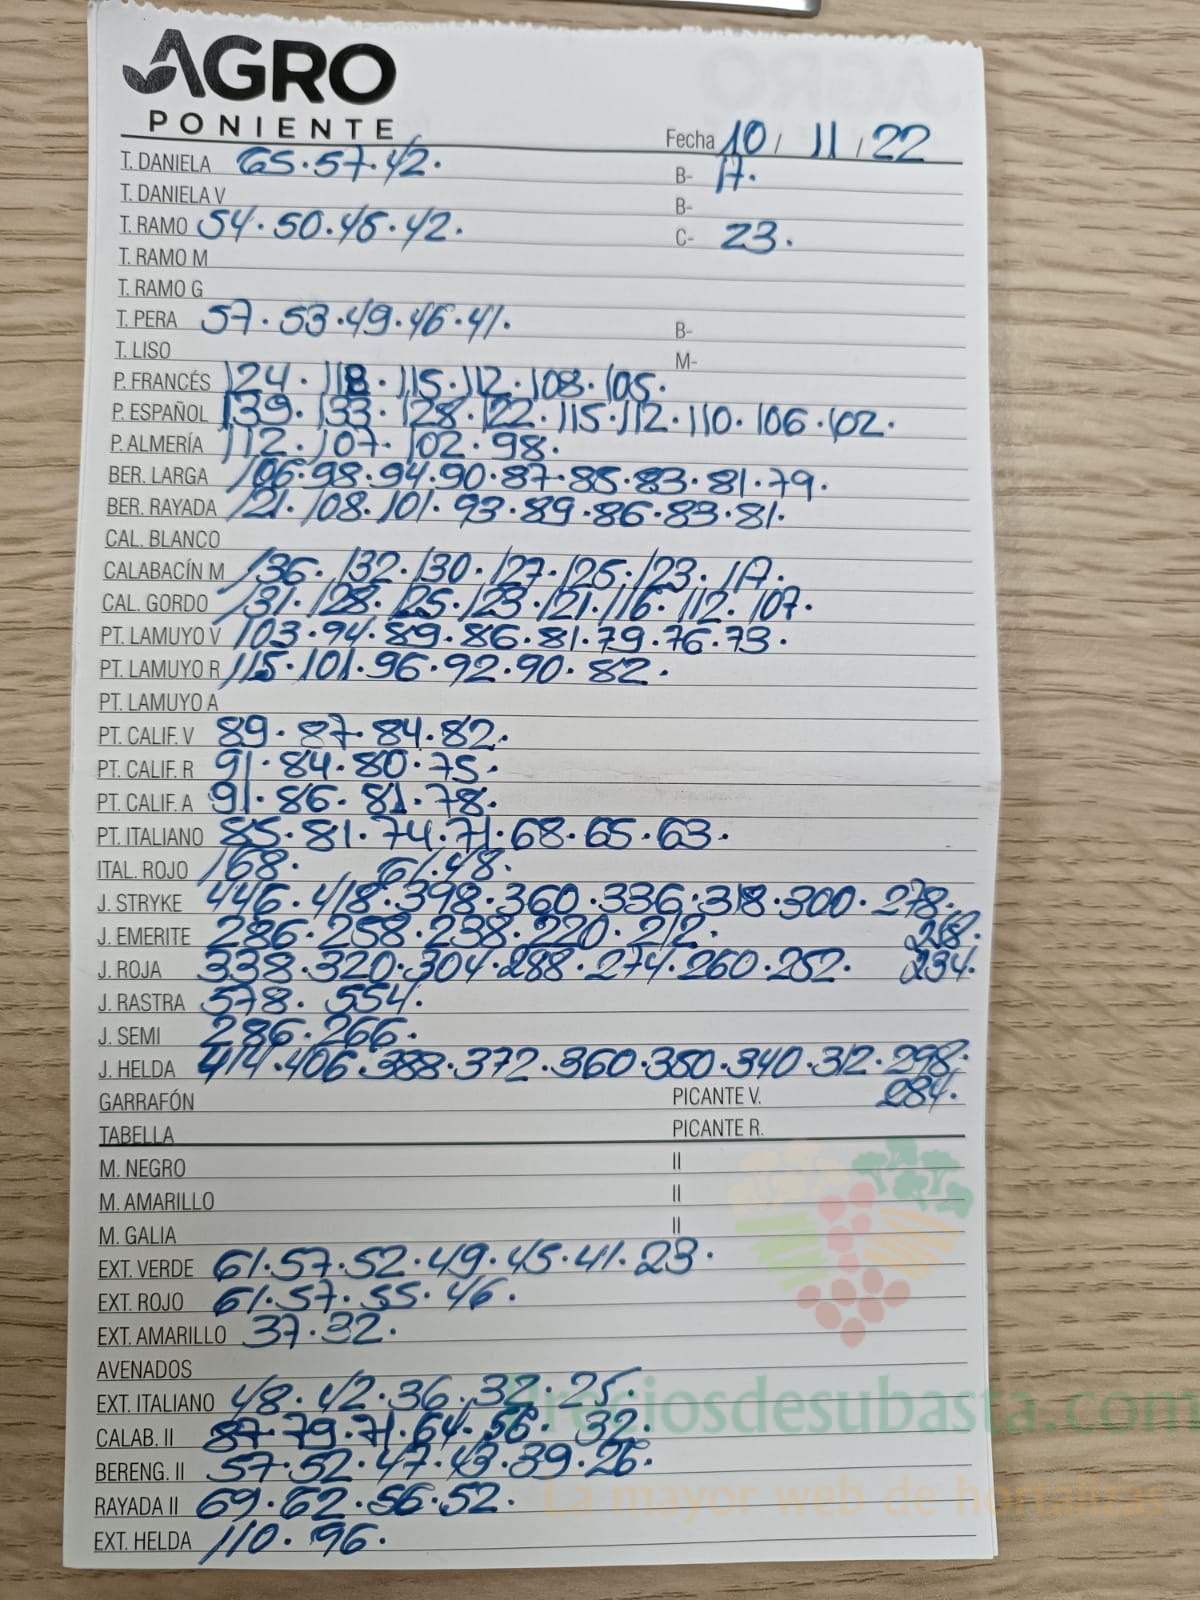 AGRO
PONIENTE
Fecha 10 / 11 / 22
T. DANIELA 65.57.42. B- 17.
T. DANIELA V B-
T. RAMO 54.50.45.42. C- 23.
T. RAMO M
T. RAMO G
T. PERA 57.53.49.46.41. B-
T. LISO M-
P. FRANCÉS 124.118.115.112.108.105.
P. ESPAÑOL 139.133.128.122.115.112.110.106.102.
P. ALMERÍA 112.107.102.98.
BER. LARGA 106.98.94.90.87.85.83.81.79.
BER. RAYADA 121.108.101.93.89.86.83.81.
CAL. BLANCO
CALABACÍN M 136.132.130.127.125.123.117.
CAL. GORDO 131.128.125.123.121.116.112.107.
PT. LAMUYO V 103.94.89.86.81.79.76.73.
PT. LAMUYO R 115.101.96.92.90.82.
PT. LAMUYO A
PT. CALIF. V 89.87.84.82.
PT. CALIF. R 91.84.80.75.
PT. CALIF. A 91.86.81.78.
PT. ITALIANO 85.81.74.71.68.65.63.
ITAL. ROJO 168. 61.48.
J. STRYKE 446.418.398.360.336.318.300.278.
J. EMERITE 286.258.238.220.212. 268.
J. ROJA 338.320.304.288.274.260.252. 234.
J. RASTRA 578. 554.
J. SEMI 286.266.
J. HELDA 414.406.388.372.360.350.340.312.298.
GARRAFÓN PICANTE V. 284.
TABELLA PICANTE R.
M. NEGRO II
M. AMARILLO II
M. GALIA II
EXT. VERDE 61.57.52.49.45.41.23.
EXT. ROJO 61.57.55.46.
EXT. AMARILLO 37.32.
AVENADOS
EXT. ITALIANO 48.42.36.32.25.
CALAB. II 87.79.71.64.56.32.
BERENG. II 57.52.47.43.39.26.
RAYADA II 69.62.56.52.
EXT. HELDA 110.96.
Preciosdesubasta.com
La mayor web de hortalizas